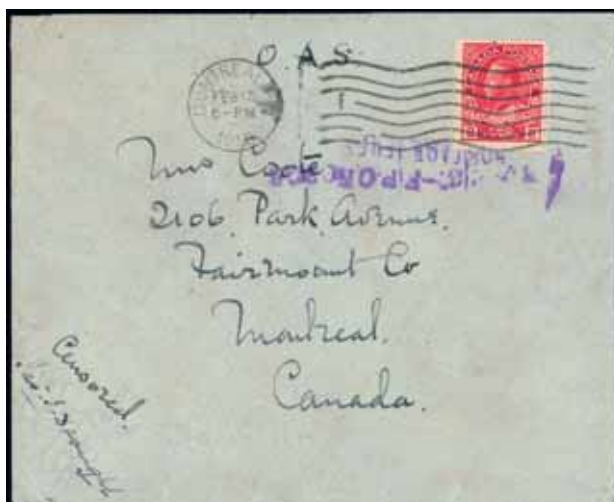 O.A.S.
MONTREAL
FEB
6-PM
1
Mrs Coote
2106, Park Avenue,
Fairmount Co
Montreal.
Canada.
Censored.